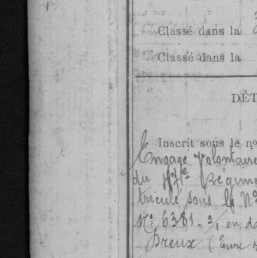 Classé dans la
Classé dans la
DÉT
Inscrit sous le nº
Engagé Volontaire
du Régim
tricule sous le Nº
Nº 6381
Dreux (Eure